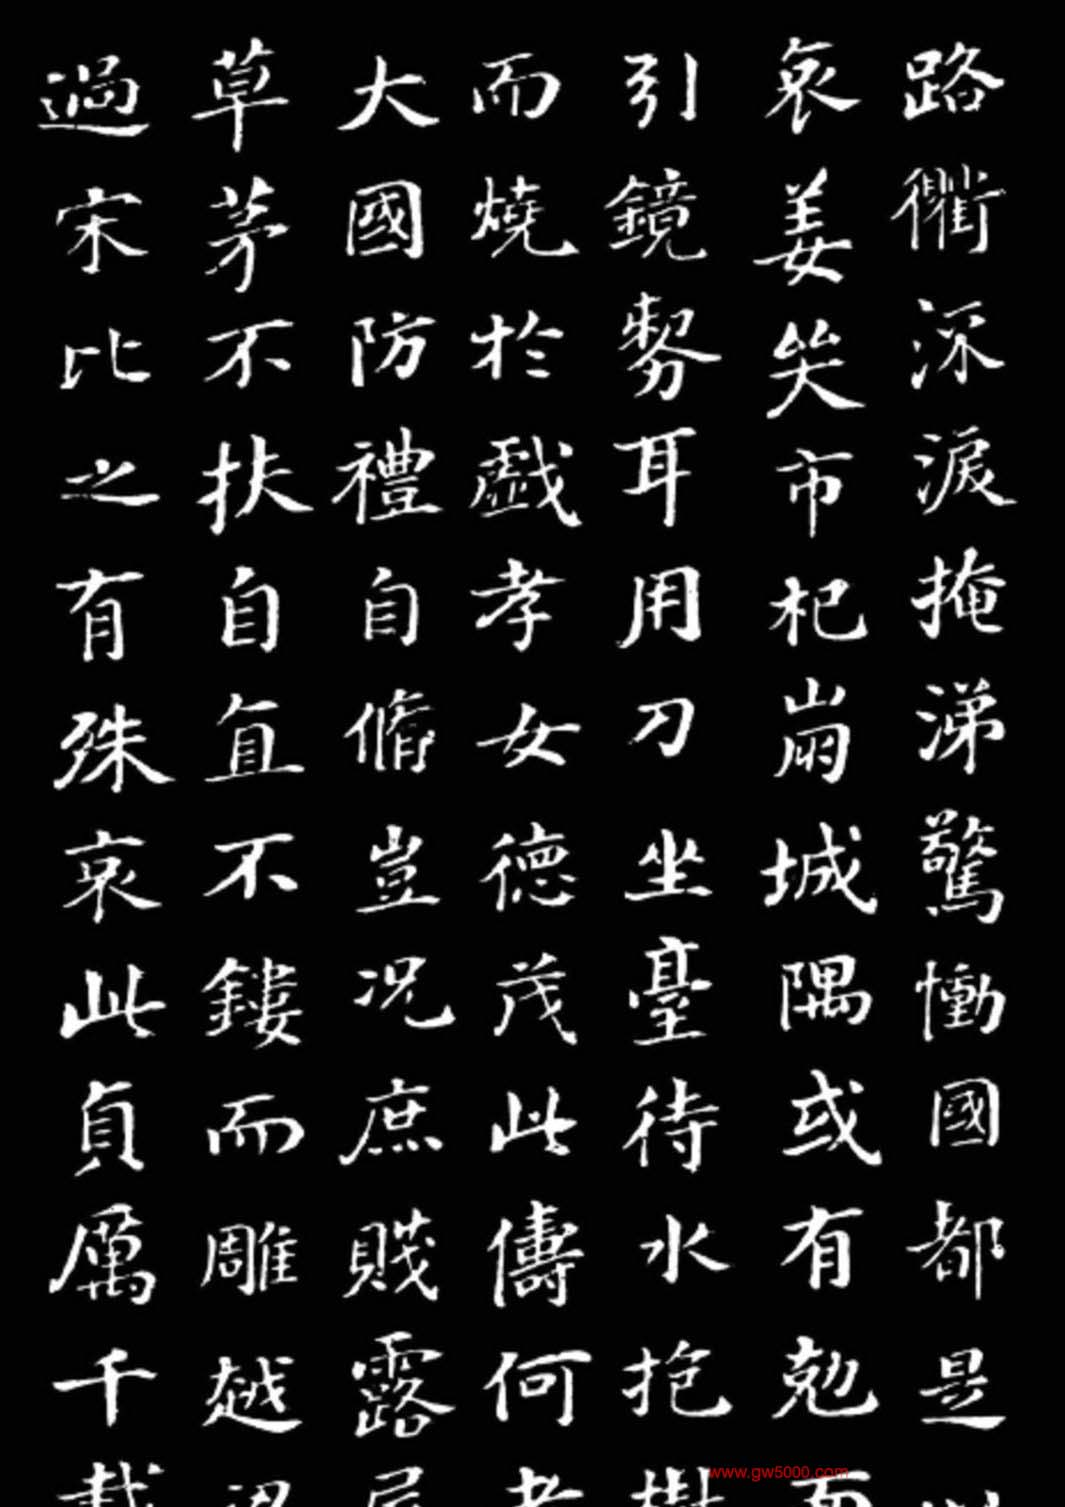 路衢深淚掩涕驚慟國都是
哀姜哭市杞崩城隅或有勊
引鏡剺耳用刀坐臺待水抱
而燒於戲孝女德茂此儔何
大國防禮自脩豈况庶賤露
草茅不扶自直不鏤而雕越
過宋比之有殊哀此貞厲千
www.gw5000.com